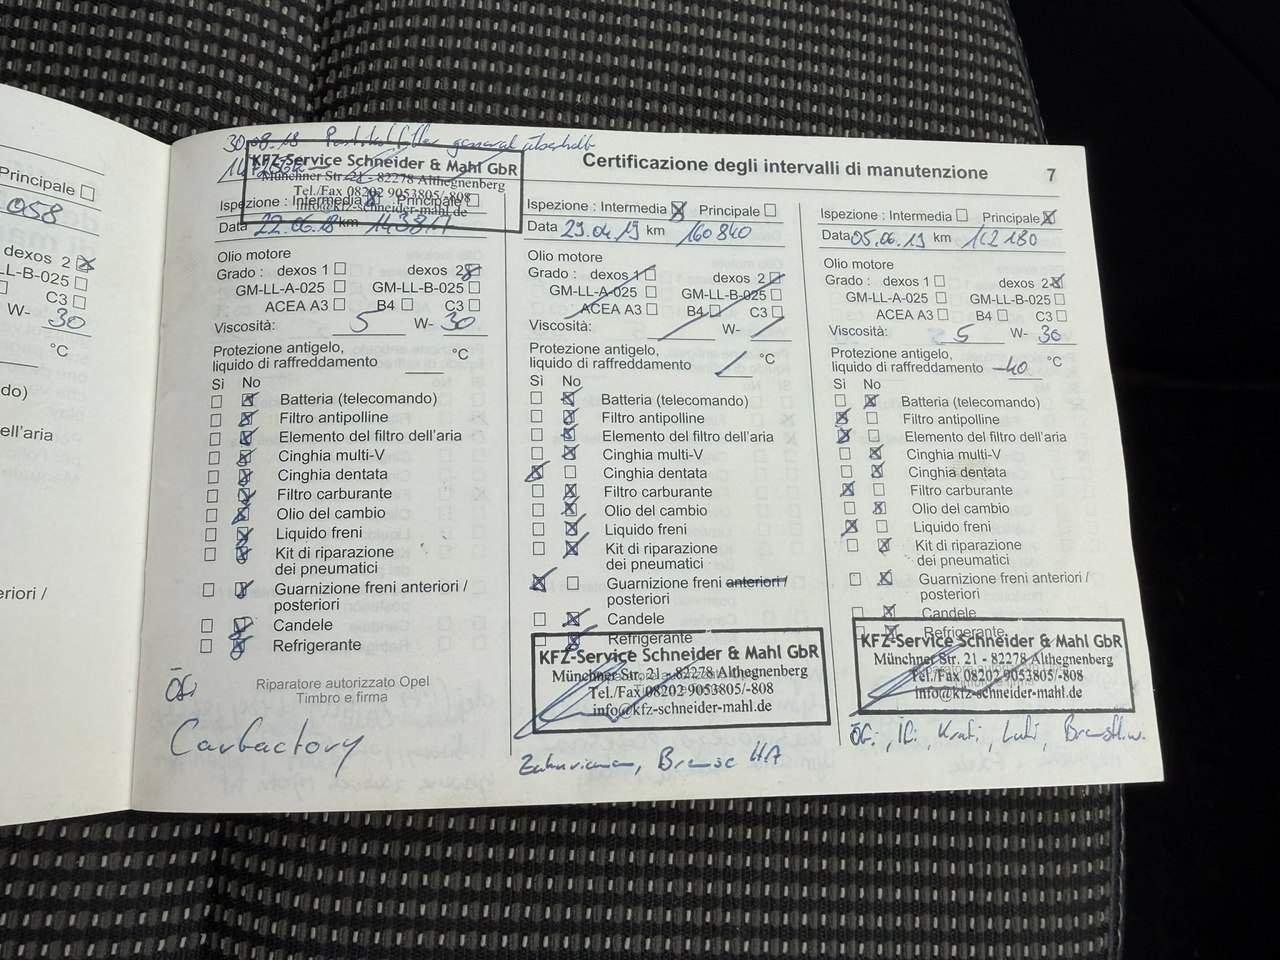 Principale
058
dexos 2
LL-B-025
C3
W- 30
°C
do)
ell'aria
eriori /
30.08.18 Partikelfilter general überholt
KFZ-Service Schneider & Mahl GbR
Münchner Str. 21 - 82278 Althegnenberg
Tel./Fax 08202 9053805/-808
info@kfz-schneider-mahl.de
Certificazione degli intervalli di manutenzione 7
Ispezione : Intermedia Principale
Data 22.06.18 km
Olio motore
Grado : dexos 1 dexos 2
GM-LL-A-025 GM-LL-B-025
ACEA A3 B4 C3
Viscosità: 5 W- 30
Protezione antigelo,
liquido di raffreddamento °C
Sì No
Batteria (telecomando)
Filtro antipolline
Elemento del filtro dell'aria
Cinghia multi-V
Cinghia dentata
Filtro carburante
Olio del cambio
Liquido freni
Kit di riparazione
dei pneumatici
Guarnizione freni anteriori /
posteriori
Candele
Refrigerante
Riparatore autorizzato Opel
Timbro e firma
ÖFi
Carfactory
Ispezione : Intermedia Principale
Data 29.04.19 km 160 840
Olio motore
Grado : dexos 1 dexos 2
GM-LL-A-025 GM-LL-B-025
ACEA A3 B4 C3
Viscosità: W-
Protezione antigelo,
liquido di raffreddamento °C
Sì No
Batteria (telecomando)
Filtro antipolline
Elemento del filtro dell'aria
Cinghia multi-V
Cinghia dentata
Filtro carburante
Olio del cambio
Liquido freni
Kit di riparazione
dei pneumatici
Guarnizione freni anteriori /
posteriori
Candele
Refrigerante
KFZ-Service Schneider & Mahl GbR
Münchner Str. 21 - 82278 Althegnenberg
Tel./Fax 08202 9053805/-808
info@kfz-schneider-mahl.de
Zahnriemen, Bremse HA
Ispezione : Intermedia Principale
Data 05.06.19 km 162 180
Olio motore
Grado : dexos 1 dexos 2
GM-LL-A-025 GM-LL-B-025
ACEA A3 B4 C3
Viscosità: 5 W- 30
Protezione antigelo,
liquido di raffreddamento -40 °C
Sì No
Batteria (telecomando)
Filtro antipolline
Elemento del filtro dell'aria
Cinghia multi-V
Cinghia dentata
Filtro carburante
Olio del cambio
Liquido freni
Kit di riparazione
dei pneumatici
Guarnizione freni anteriori /
posteriori
Candele
Refrigerante
Riparatore autorizzato Opel
Timbro e firma
KFZ-Service Schneider & Mahl GbR
Münchner Str. 21 - 82278 Althegnenberg
Tel./Fax 08202 9053805/-808
info@kfz-schneider-mahl.de
ÖFi, IFi, Krafi, Lufi, Bremsfl.w.